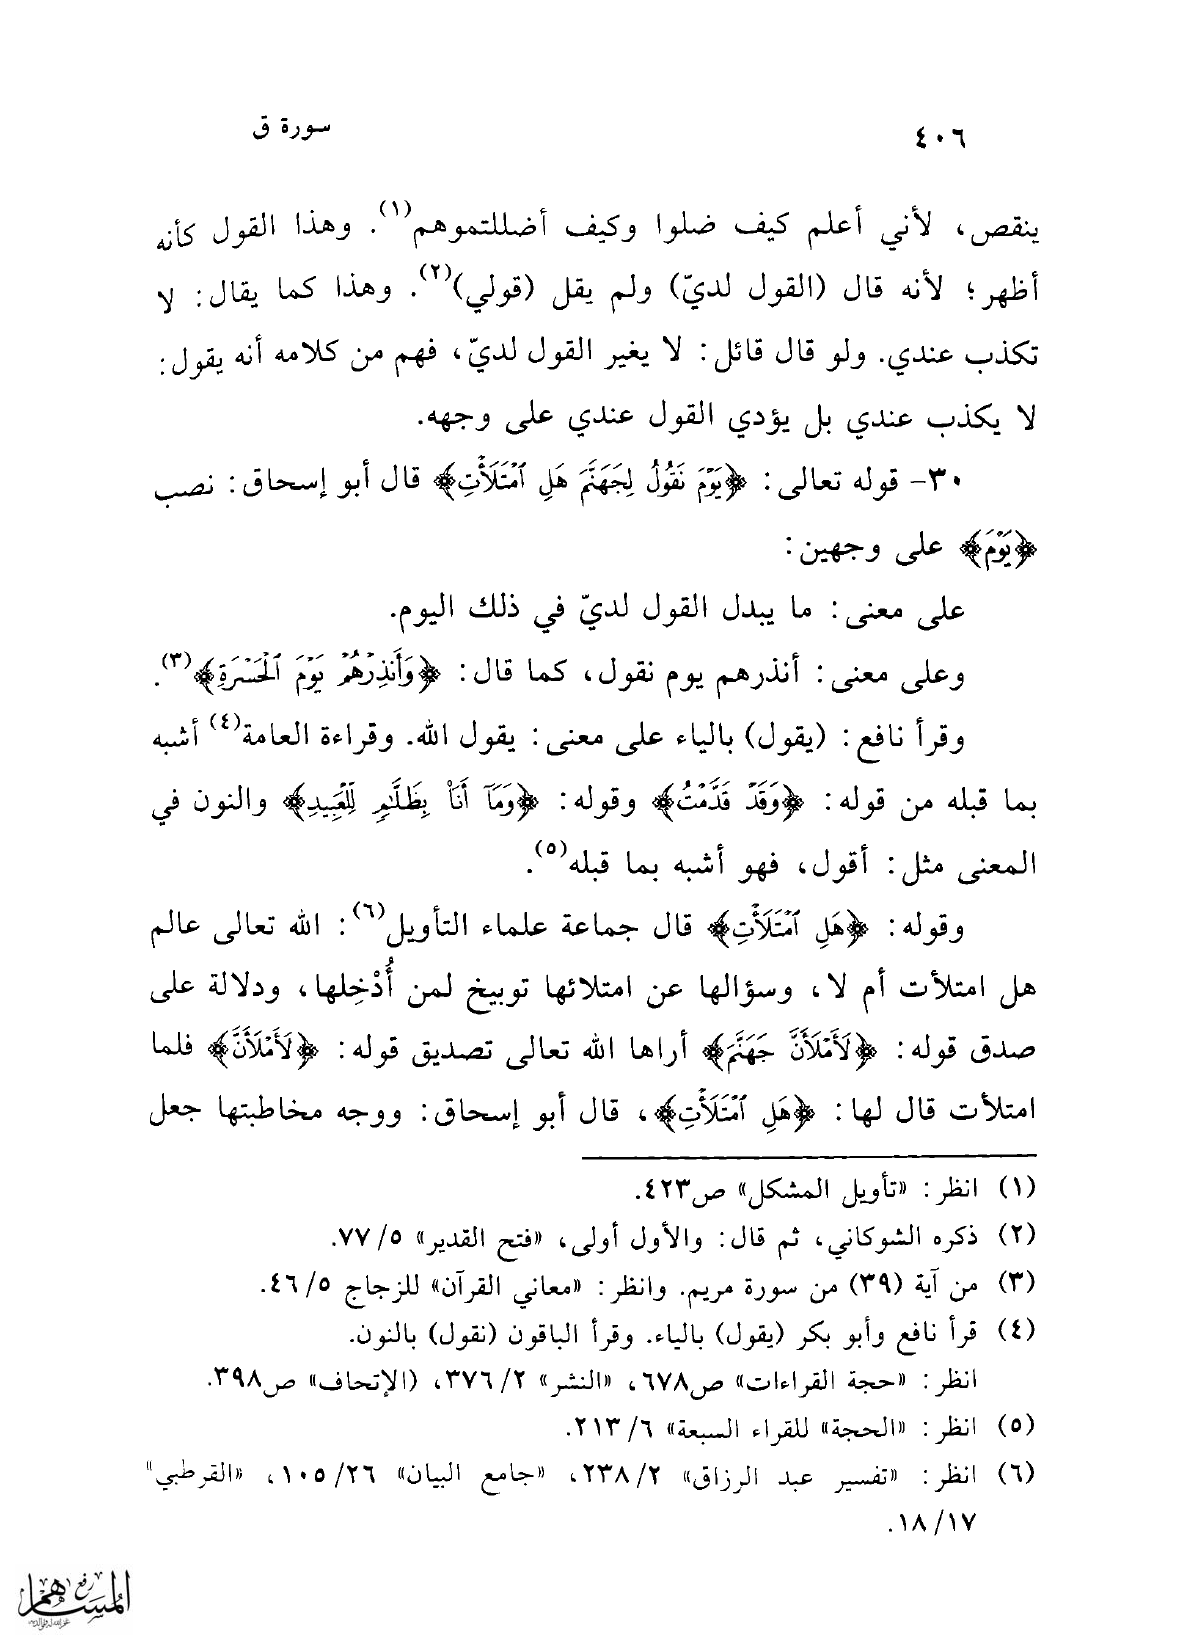 ٤٠٦ سورة ق
ينقص، لأني أعلم كيف ضلوا وكيف أضللتموهم(١). وهذا القول كأنه
أظهر؛ لأنه قال (القول لديّ) ولم يقل (قولي)(٢). وهذا كما يقال: لا
تكذب عندي. ولو قال قائل: لا يغير القول لديّ، فهم من كلامه أنه يقول:
لا يكذب عندي بل يؤدي القول عندي على وجهه.
٣٠- قوله تعالى: ﴿يَوْمَ نَقُولُ لِجَهَنَّمَ هَلِ ٱمْتَلَأْتِ﴾ قال أبو إسحاق: نصب
﴿يَوْمَ﴾ على وجهين:
على معنى: ما يبدل القول لديّ في ذلك اليوم.
وعلى معنى: أنذرهم يوم نقول، كما قال: ﴿وَأَنذِرْهُمْ يَوْمَ ٱلْحَسْرَةِ﴾(٣).
وقرأ نافع: (يقول) بالياء على معنى: يقول الله. وقراءة العامة(٤) أشبه
بما قبله من قوله: ﴿وَقَدْ قَدَّمْتُ﴾ وقوله: ﴿وَمَآ أَنَا۠ بِظَلَّٰمٍ لِّلْعَبِيدِ﴾ والنون في
المعنى مثل: أقول، فهو أشبه بما قبله(٥).
وقوله: ﴿هَلِ ٱمْتَلَأْتِ﴾ قال جماعة علماء التأويل(٦): الله تعالى عالم
هل امتلأت أم لا، وسؤالها عن امتلائها توبيخ لمن أُدْخِلها، ودلالة على
صدق قوله: ﴿لَأَمْلَأَنَّ جَهَنَّمَ﴾ أراها الله تعالى تصديق قوله: ﴿لَأَمْلَأَنَّ﴾ فلما
امتلأت قال لها: ﴿هَلِ ٱمْتَلَأْتِ﴾، قال أبو إسحاق: ووجه مخاطبتها جعل
(١) انظر: «تأويل المشكل» ص٤٢٣.
(٢) ذكره الشوكاني، ثم قال: والأول أولى، «فتح القدير» ٥/ ٧٧.
(٣) من آية (٣٩) من سورة مريم. وانظر: «معاني القرآن» للزجاج ٥/ ٤٦.
(٤) قرأ نافع وأبو بكر (يقول) بالياء. وقرأ الباقون (نقول) بالنون.
انظر: «حجة القراءات» ص٦٧٨، «النشر» ٢/ ٣٧٦، (الإتحاف» ص٣٩٨.
(٥) انظر: «الحجة» للقراء السبعة» ٦/ ٢١٣.
(٦) انظر: «تفسير عبد الرزاق» ٢/ ٢٣٨، «جامع البيان» ٢٦/ ١٠٥، «القرطبي»
١٧/ ١٨.
رفع
المساهم